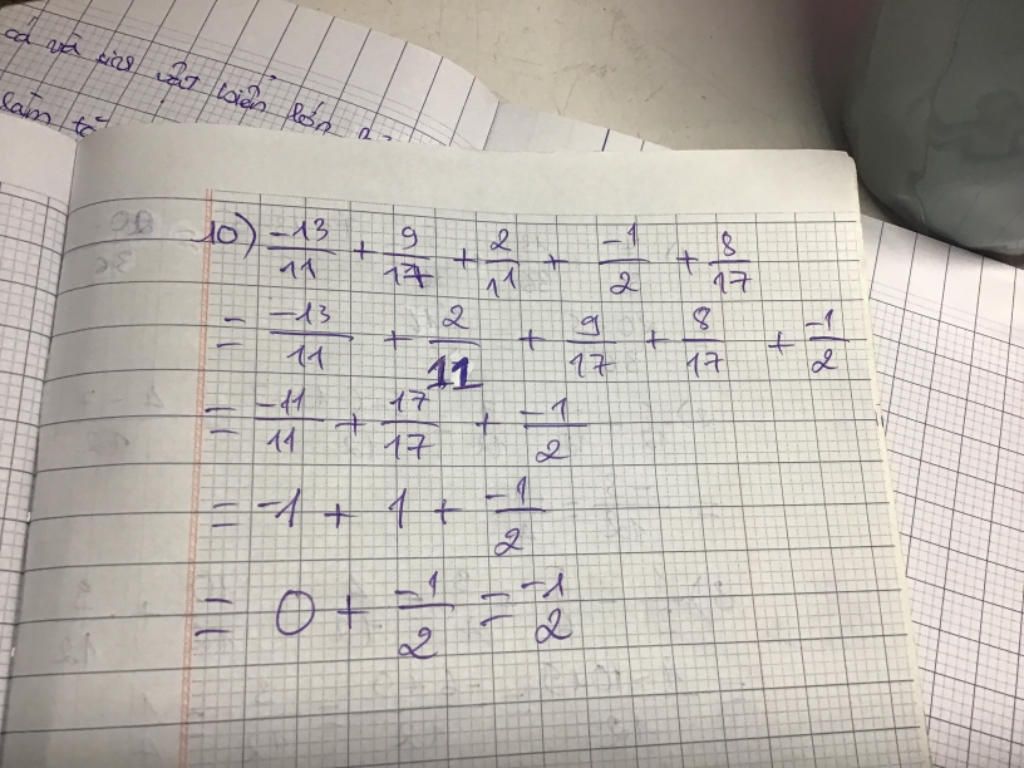 cá và sinh vật biển lớn
làm
10) -13/11 + 9/17 + 2/11 + -1/2 + 8/17
= -13/11 + 2/11 + 9/17 + 8/17 + -1/2
= -11/11 + 17/17 + -1/2
= -1 + 1 + -1/2
= 0 + -1/2 = -1/2